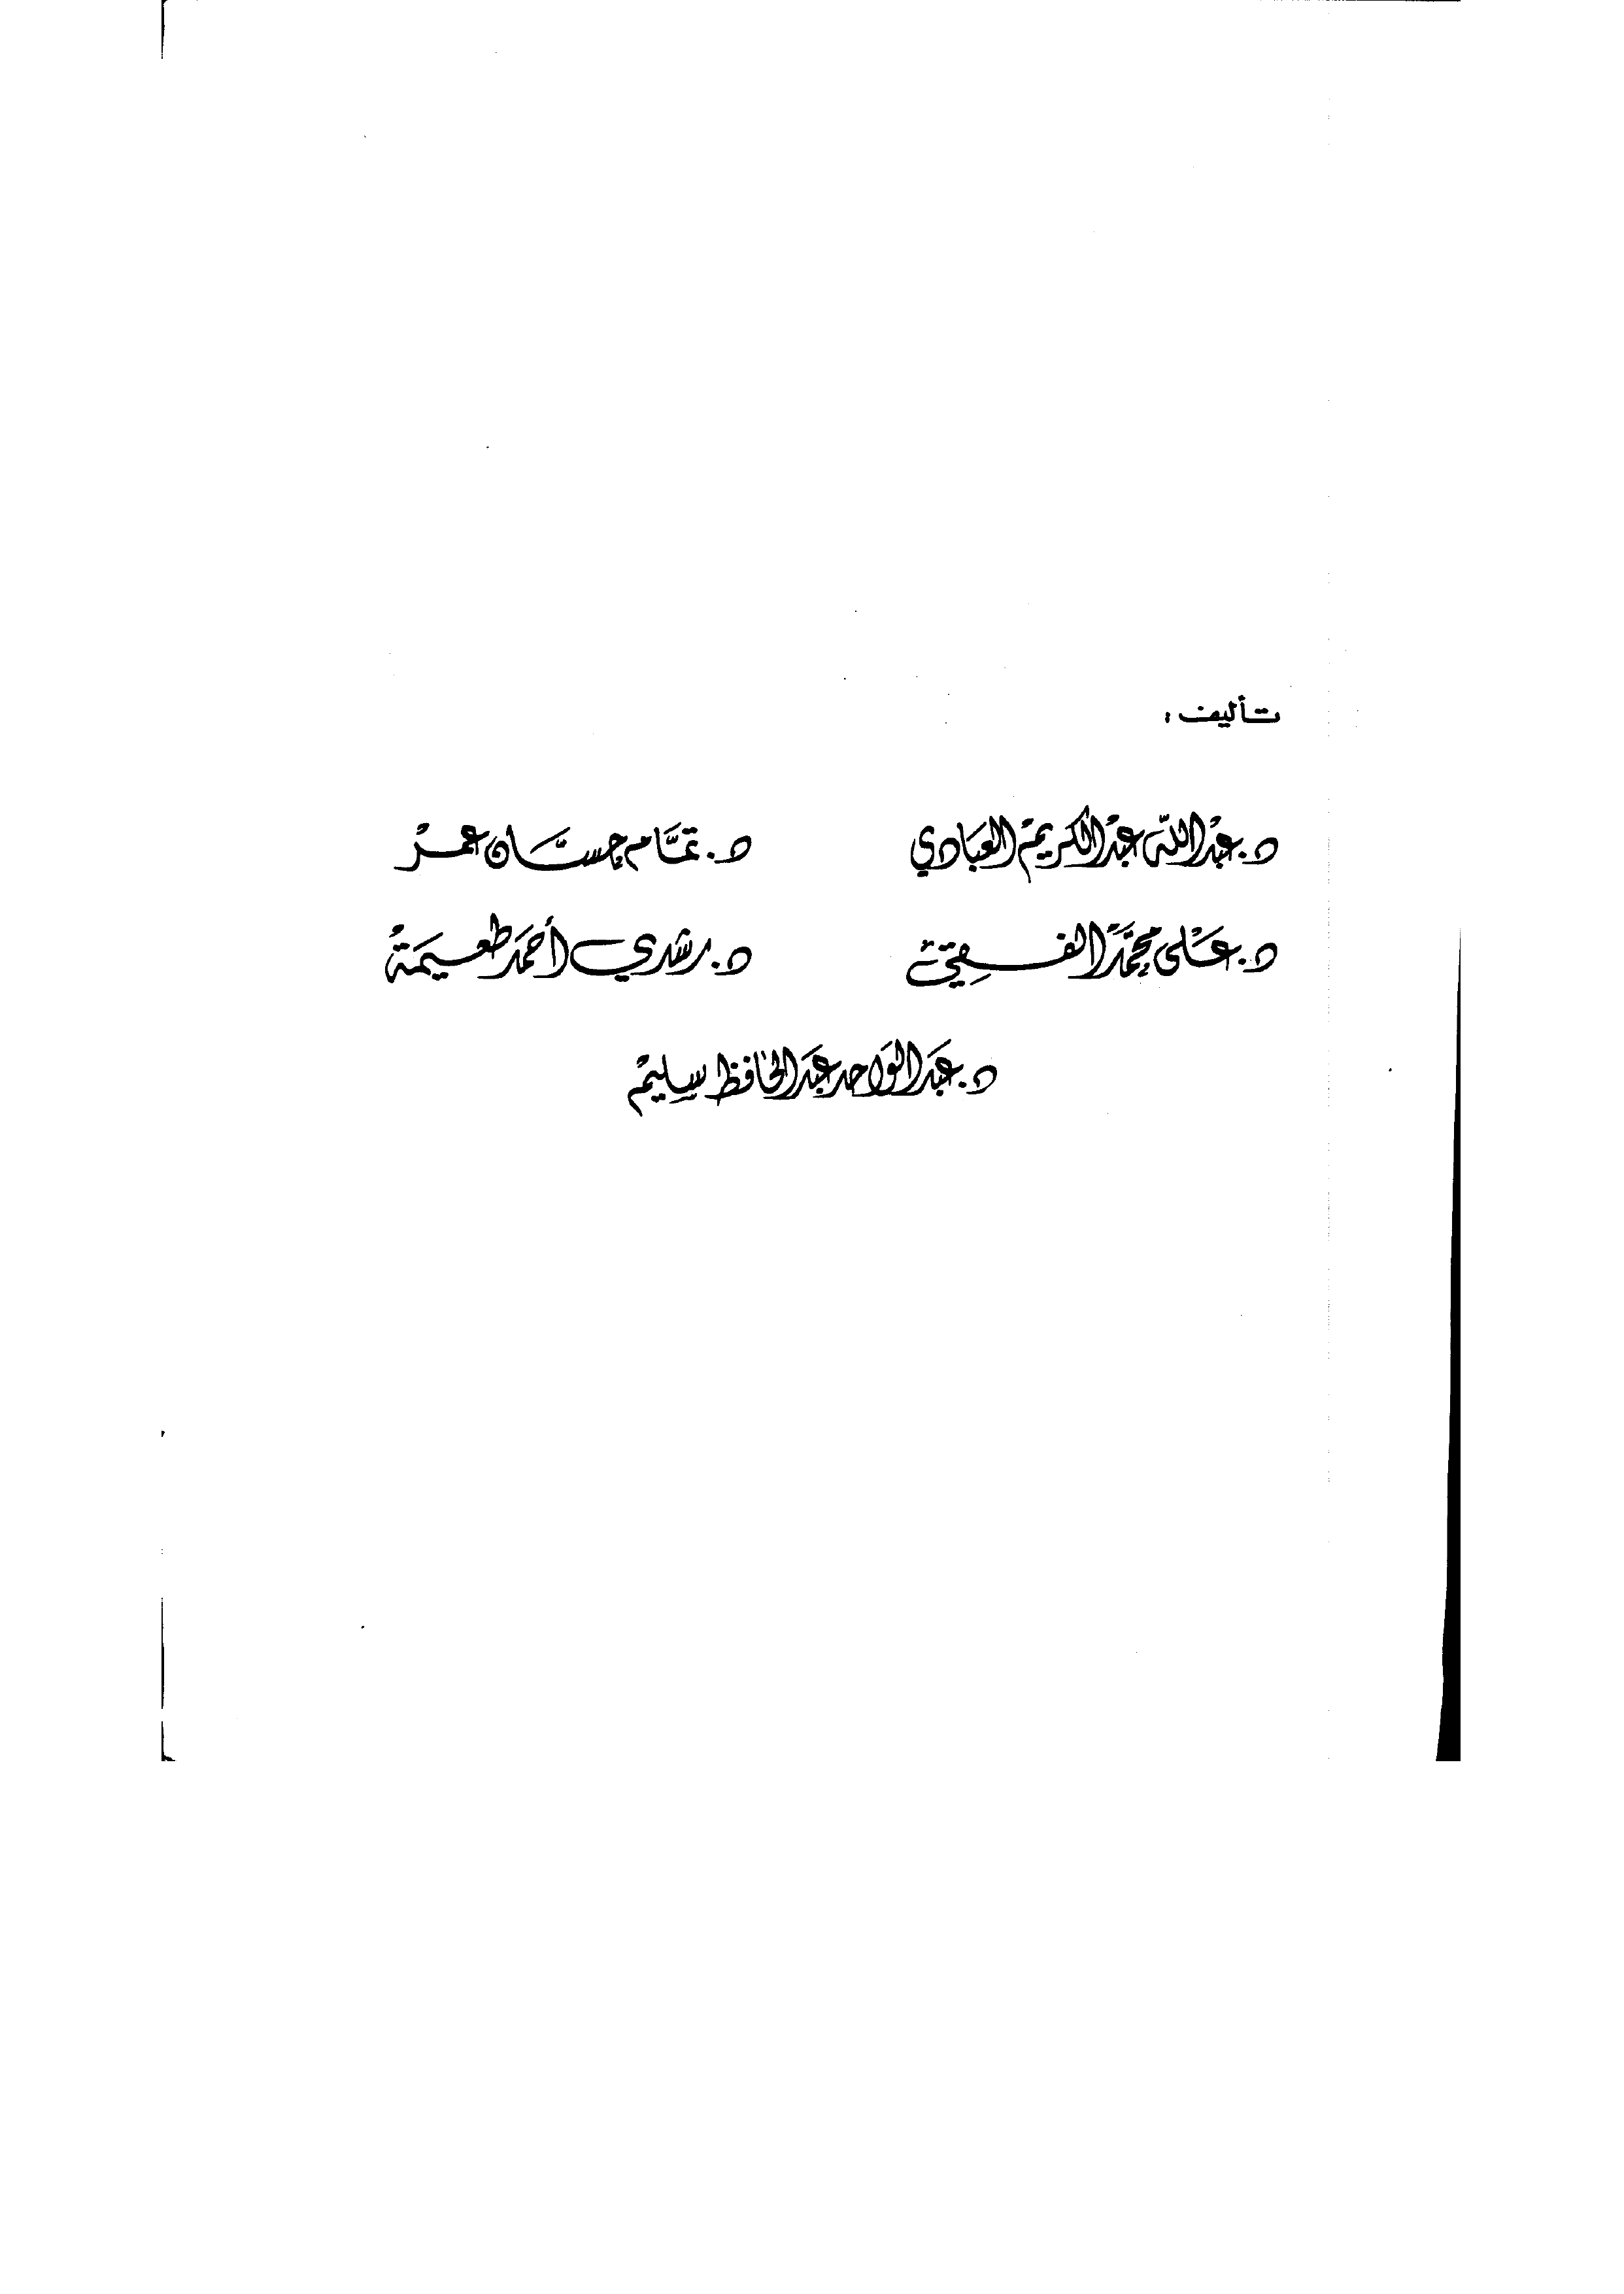 تأليف :
د. عبد الله عبد الكريم العبادي د. تمّام حسّان عمر
د. على محمّد الفقي د. رشدي أحمد طعيمة
د. عبد الواحد عبد الحافظ سليم